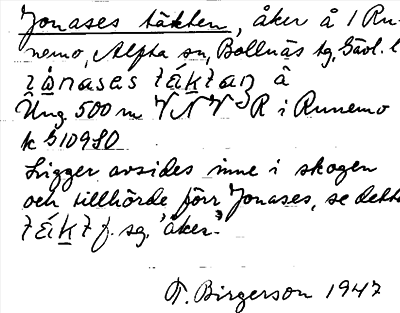 Jonases täkten, åker å 1 Ru-
nemo, Alfta sn, Bollnäs tg, Gävl. l
å
Ung. 500 m VNV R i Runemo
k
Ligger avsides inne i skogen
och tillhörde förr Jonases, se detta
f. sg. 'åker'.
T. Birgerson 1947